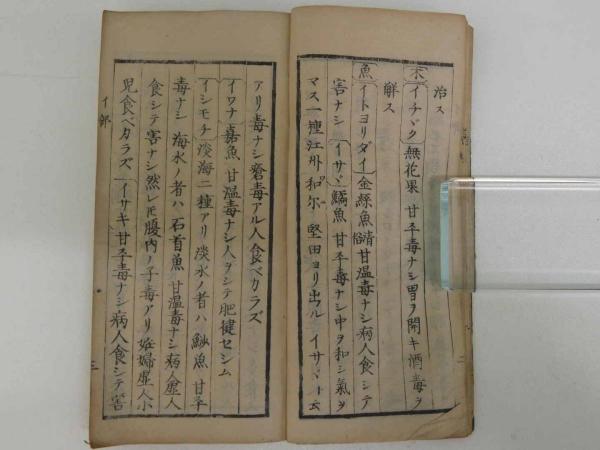 治ス
木 イチヾク 無花果 甘平毒ナシ胃ヲ開キ酒毒ヲ
解ス
魚 イトヨリダイ 金線魚 清俗 甘温毒ナシ病人食シテ
害ナシ イサヾ 鱊魚 甘平毒ナシ中ヲ和シ氣ヲ
マス一種江州和尓堅田ヨリ出ル イサヾト云
アリ毒ナシ瘡毒アル人食ベカラズ
イワナ 嘉魚 甘温毒ナシ人ヲシテ肥健セシム
イシモチ 淡海二種アリ淡水ノ者ハ 魚 甘平
毒ナシ 海水ノ者ハ 石首魚 甘温毒ナシ病人虚人
食シテ害ナシ然レ𪜈腹内ノ子毒アリ妊婦虚人小
児食ベカラズ イサキ 甘平毒ナシ病人食シテ害
イ部
三
二